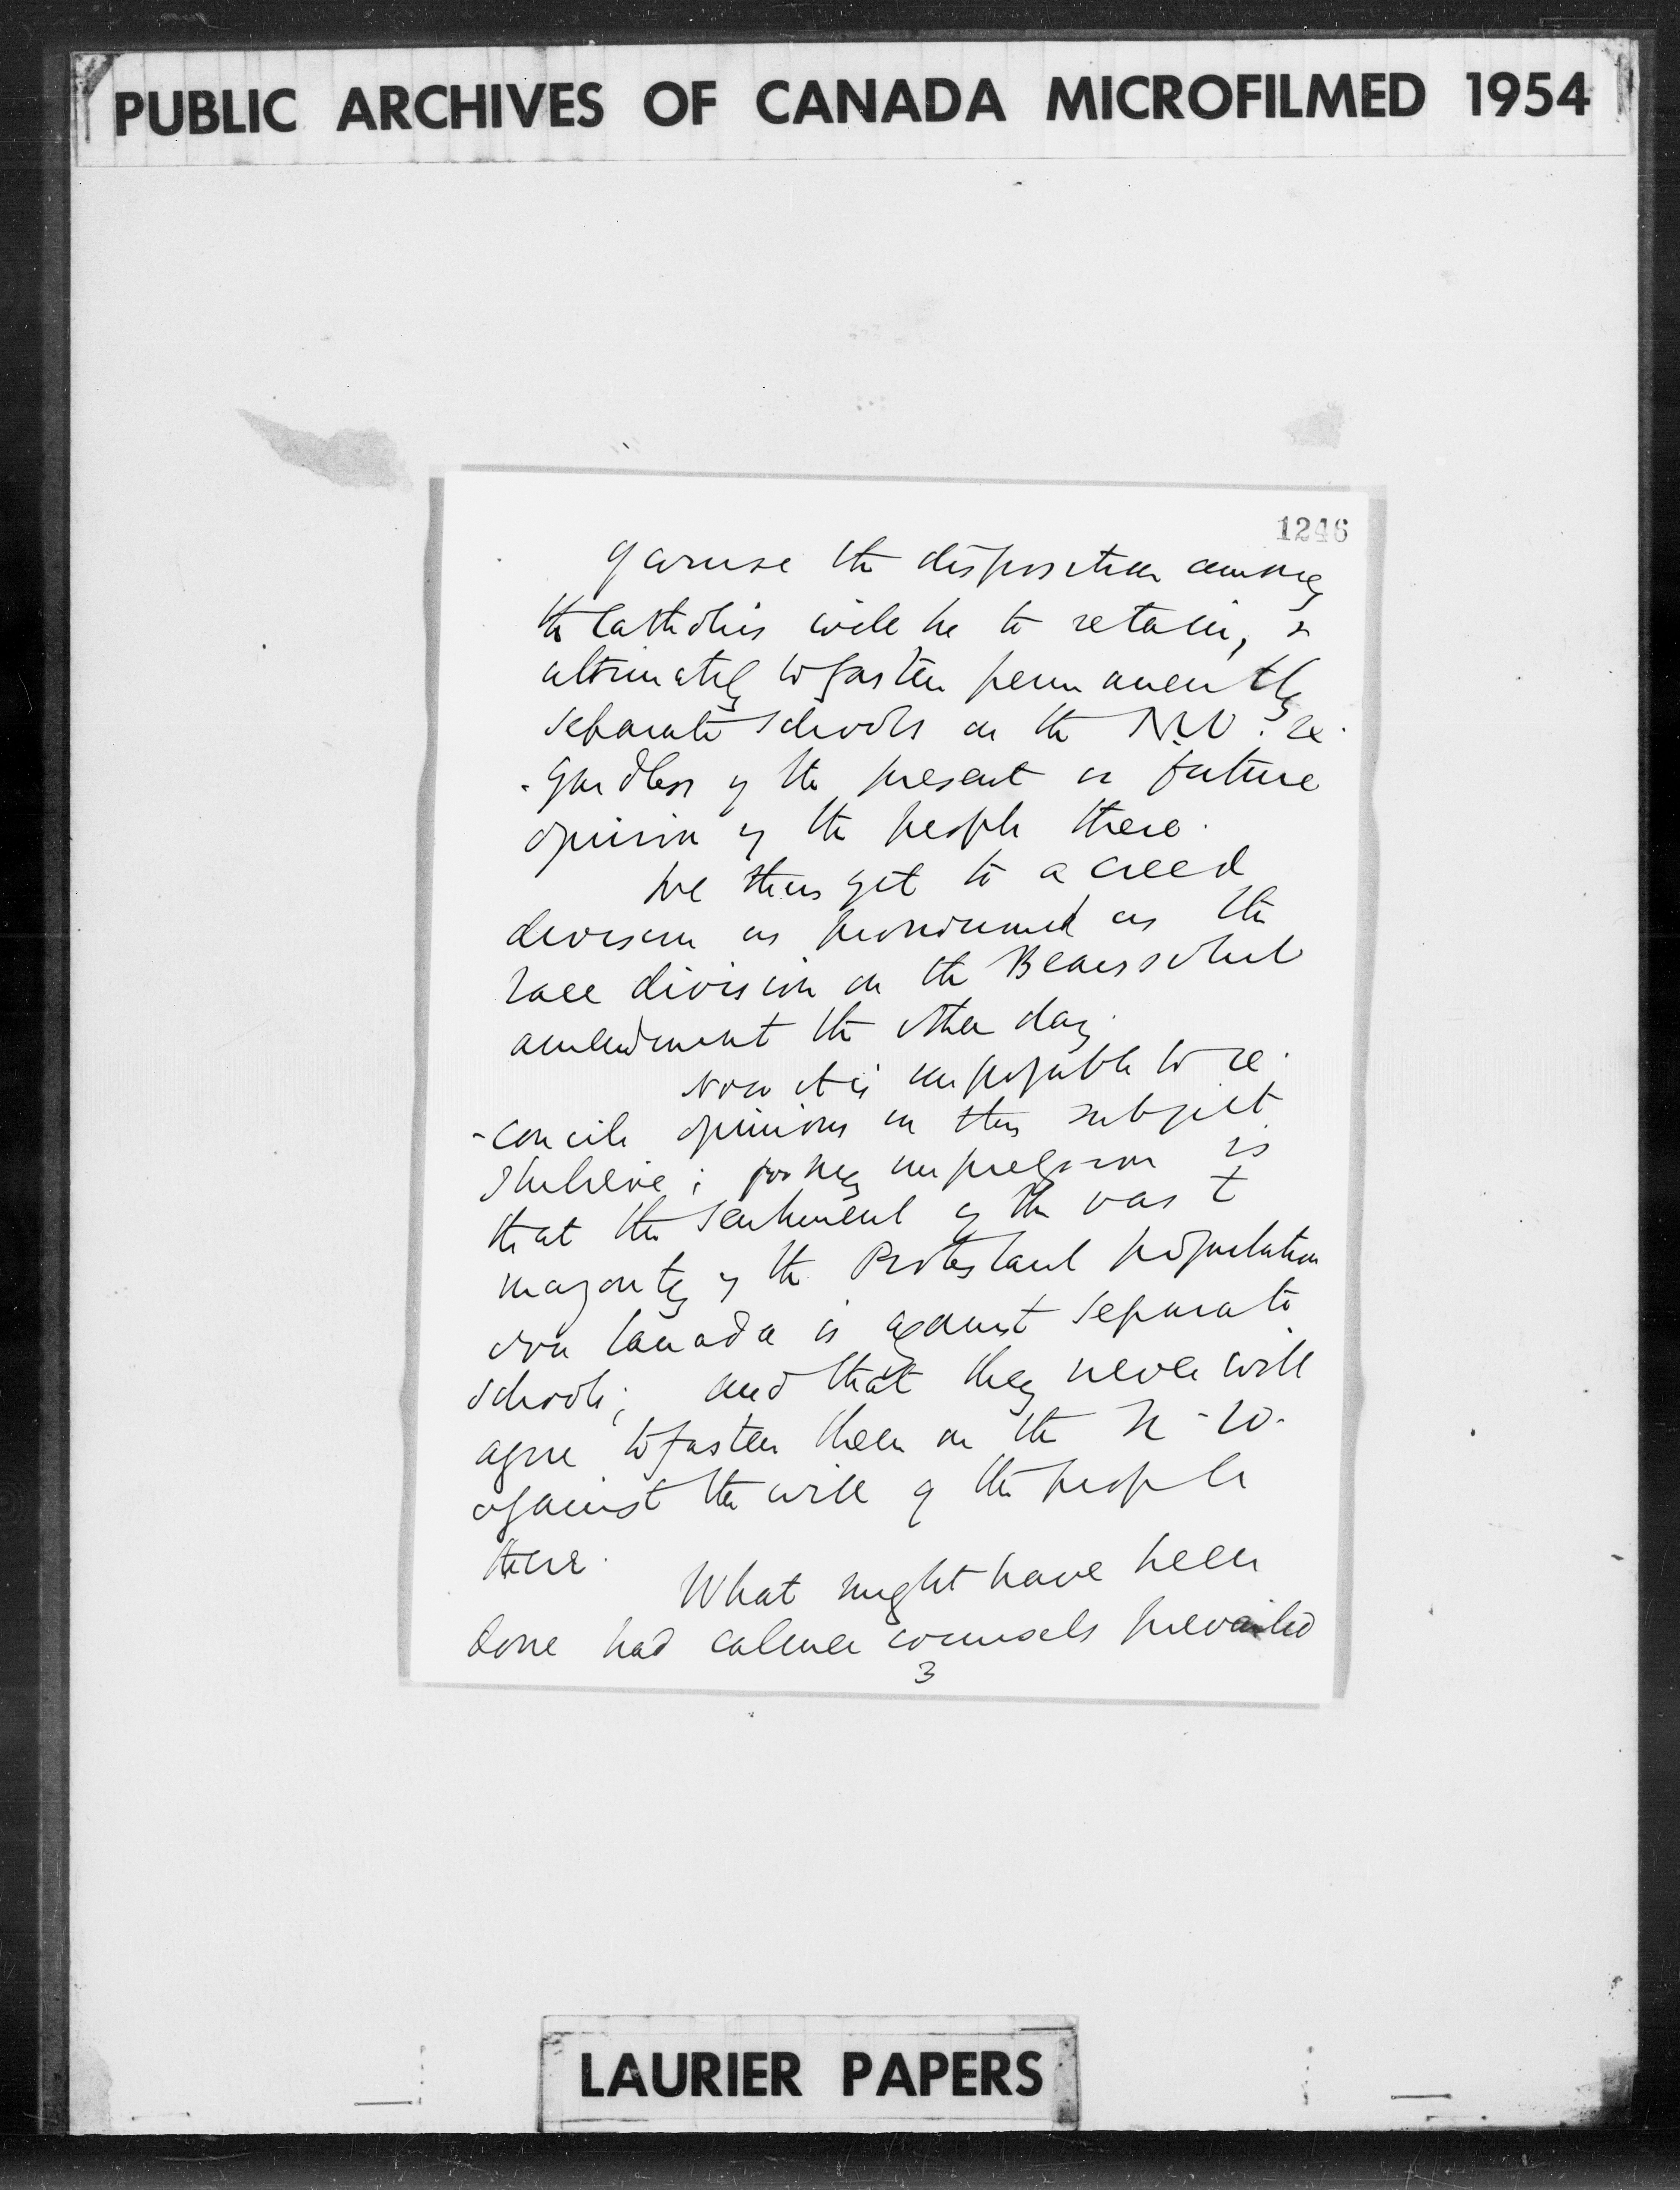 PUBLIC ARCHIVES OF CANADA MICROFILMED 1954
1246
Of course the disposition among
the Catholics will be to retain, &
ultimately to fasten permanently
separate schools on the NW. re-
-gardless of the present or future
opinion of the people there.
We thus get to a creed
division as pronounced as the
race division on the Beausoleil
amendment the other day.
Now it is impossible to re-
-concile opinions on this subject
I believe; for my impression is
that the sentiment of the vast
majority of the Protestant population
in Canada is against separate
schools; and that they never will
agree to fasten them on the N-W.
against the will of the people
there.
What might have been
done had calmer counsels prevailed
3
LAURIER PAPERS